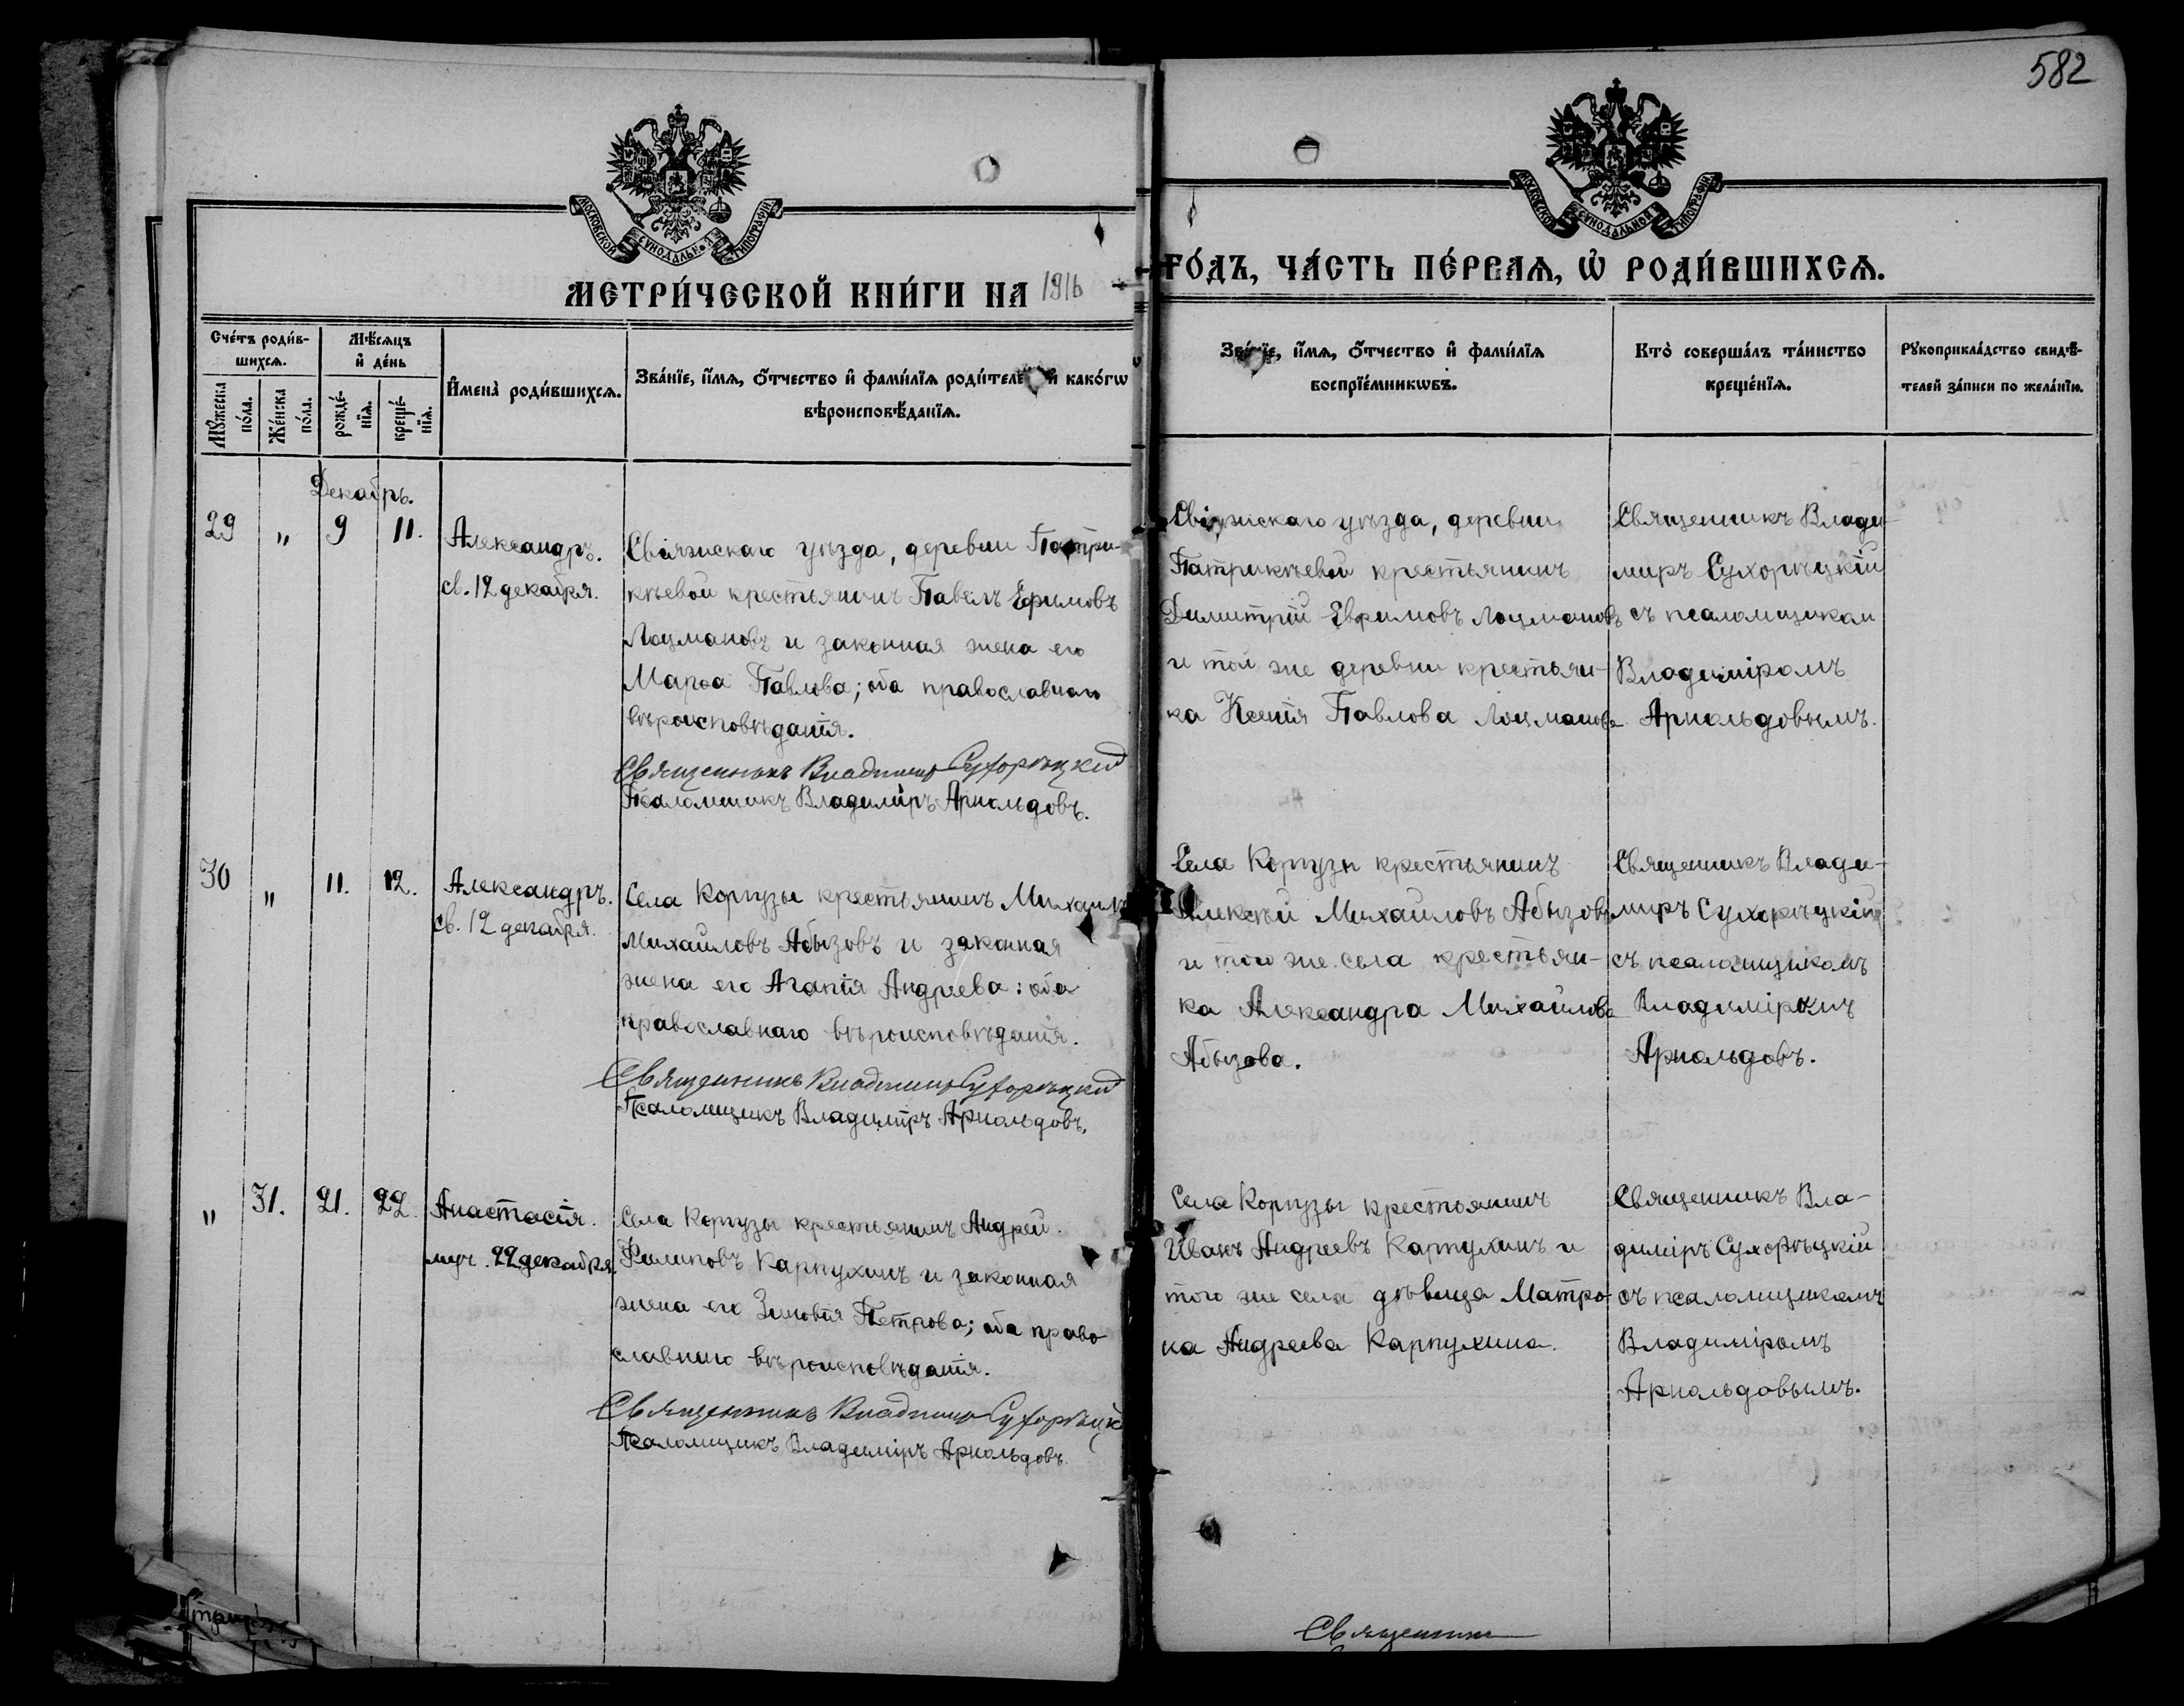 582
МОСКОВСКОЙ СУНОДАЛЬНОЙ ТИПОГРАФІИ
МОСКОВСКОЙ СУНОДАЛЬНОЙ ТИПОГРАФІИ
МЕТРИ́ЧЕСКОЙ КНИ́ГИ НА 1916
ГО́ДЪ, ЧА́СТЬ ПЕ́РВАЯ, Ѡ РОДИ́ВШИХСЯ.
Сче́тъ роди́в-
шихся.
Мѣ́сяцъ
и де́нь
Мꙋжеска по́ла.
Же́нска по́ла.
рожде́-
нїя.
креще́-
нїя.
Имена̀ роди́вшихся.
Зва́нїе, и́мя, о́тчество и фами́лїя роди́телей и како́гѡ
вѣроисповѣ́данїя.
Зва́нїе, и́мя, о́тчество и фами́лїя
воспрїе́мникѡвъ.
Кто̀ соверша́лъ та́инство
креще́нїя.
Рꙋкоприкла́дство свидѣ́-
телей за́писи по жела́нїю.
Декабрь.
29 " 9 11.
Александръ.
св. 12 декабря.
Свіяжскаго уѣзда, деревни Патри-
кѣевой крестьянинъ Павелъ Ефимовъ
Лоцмановъ и законная жена его
Марѳа Павлова; оба православнаго
вѣроисповѣданія.
Священникъ Владимір Сухорѣцкій
Псаломщикъ Владиміръ Арнольдовъ.
Свіяжскаго уѣзда, деревни
Патрикѣевой крестьянинъ
Димитрій Евфимовъ Лоцмановъ
и той же деревни крестьян-
ка Ксенія Павлова Лоцманова
Священникъ Влади-
миръ Сухорѣцкій
съ псаломщикомъ
Владиміромъ
Арнольдовымъ.
30 " 11. 12.
Александръ.
св. 12 декабря.
Села Коргузы крестьянинъ Михаилъ
Михайловъ Абызовъ и законная
жена его Агапія Андреева: оба
православнаго вѣроисповѣданія.
Священникъ Владимір Сухорѣцкій
Псаломщикъ Владиміръ Арнольдовъ.
Села Коргузы крестьянинъ
Алексѣй Михайловъ Абызовъ
и того же села крестьян-
ка Александра Михайлова
Абызова.
Священникъ Влади-
миръ Сухорѣцкій
съ псаломщикомъ
Владиміромъ
Арнольдовъ.
" 31. 21. 22.
Анастасія.
муч. 22 декабря.
Села Коргузы крестьянинъ Андрей
Филиповъ Карпухинъ и законная
жена его Зиновія Петрова; оба право
славнаго вѣроисповѣданія.
Священникъ Владимір Сухорѣцкій
Псаломщикъ Владиміръ Арнольдовъ.
Села Коргузы крестьянинъ
Иванъ Андреевъ Карпухинъ и
того же села дѣвица Матро-
на Андреева Карпухина.
Священникъ Вла-
диміръ Сухорѣцкій
съ псаломщикомъ
Владиміромъ
Арнольдовымъ.
Священникъ